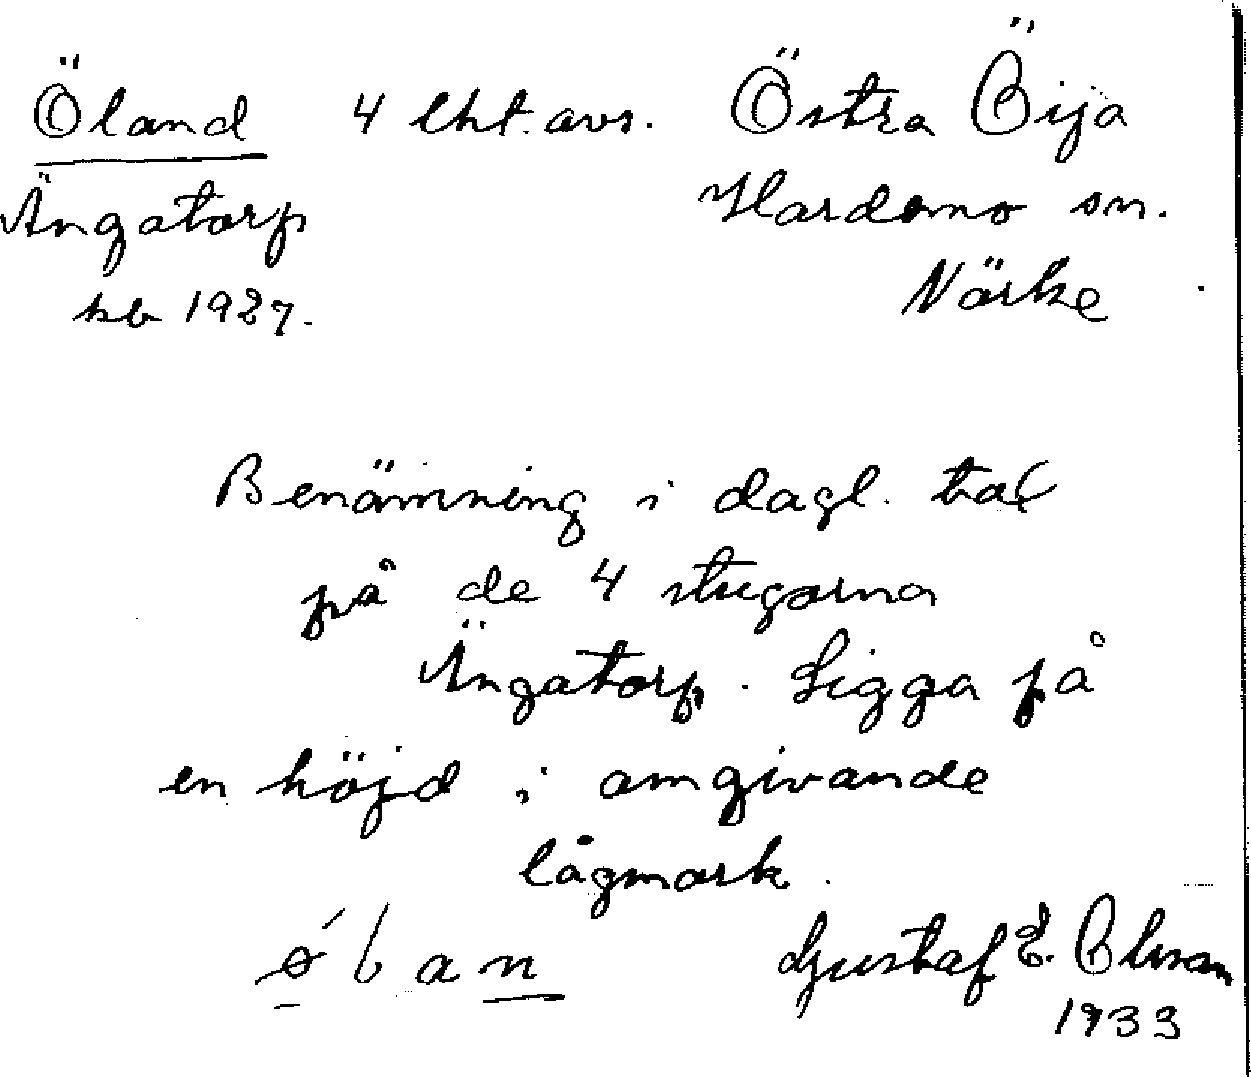 Öland 4 lht. avs. Östra Öija
Ängatorp Hardemo sn.
hb 1927. Närke
Benämning i dagl. tal
på de 4 stugorna
Ängatorp. Ligga på
en höjd i omgivande
lågmark.
Gustaf E. Olsson
1933